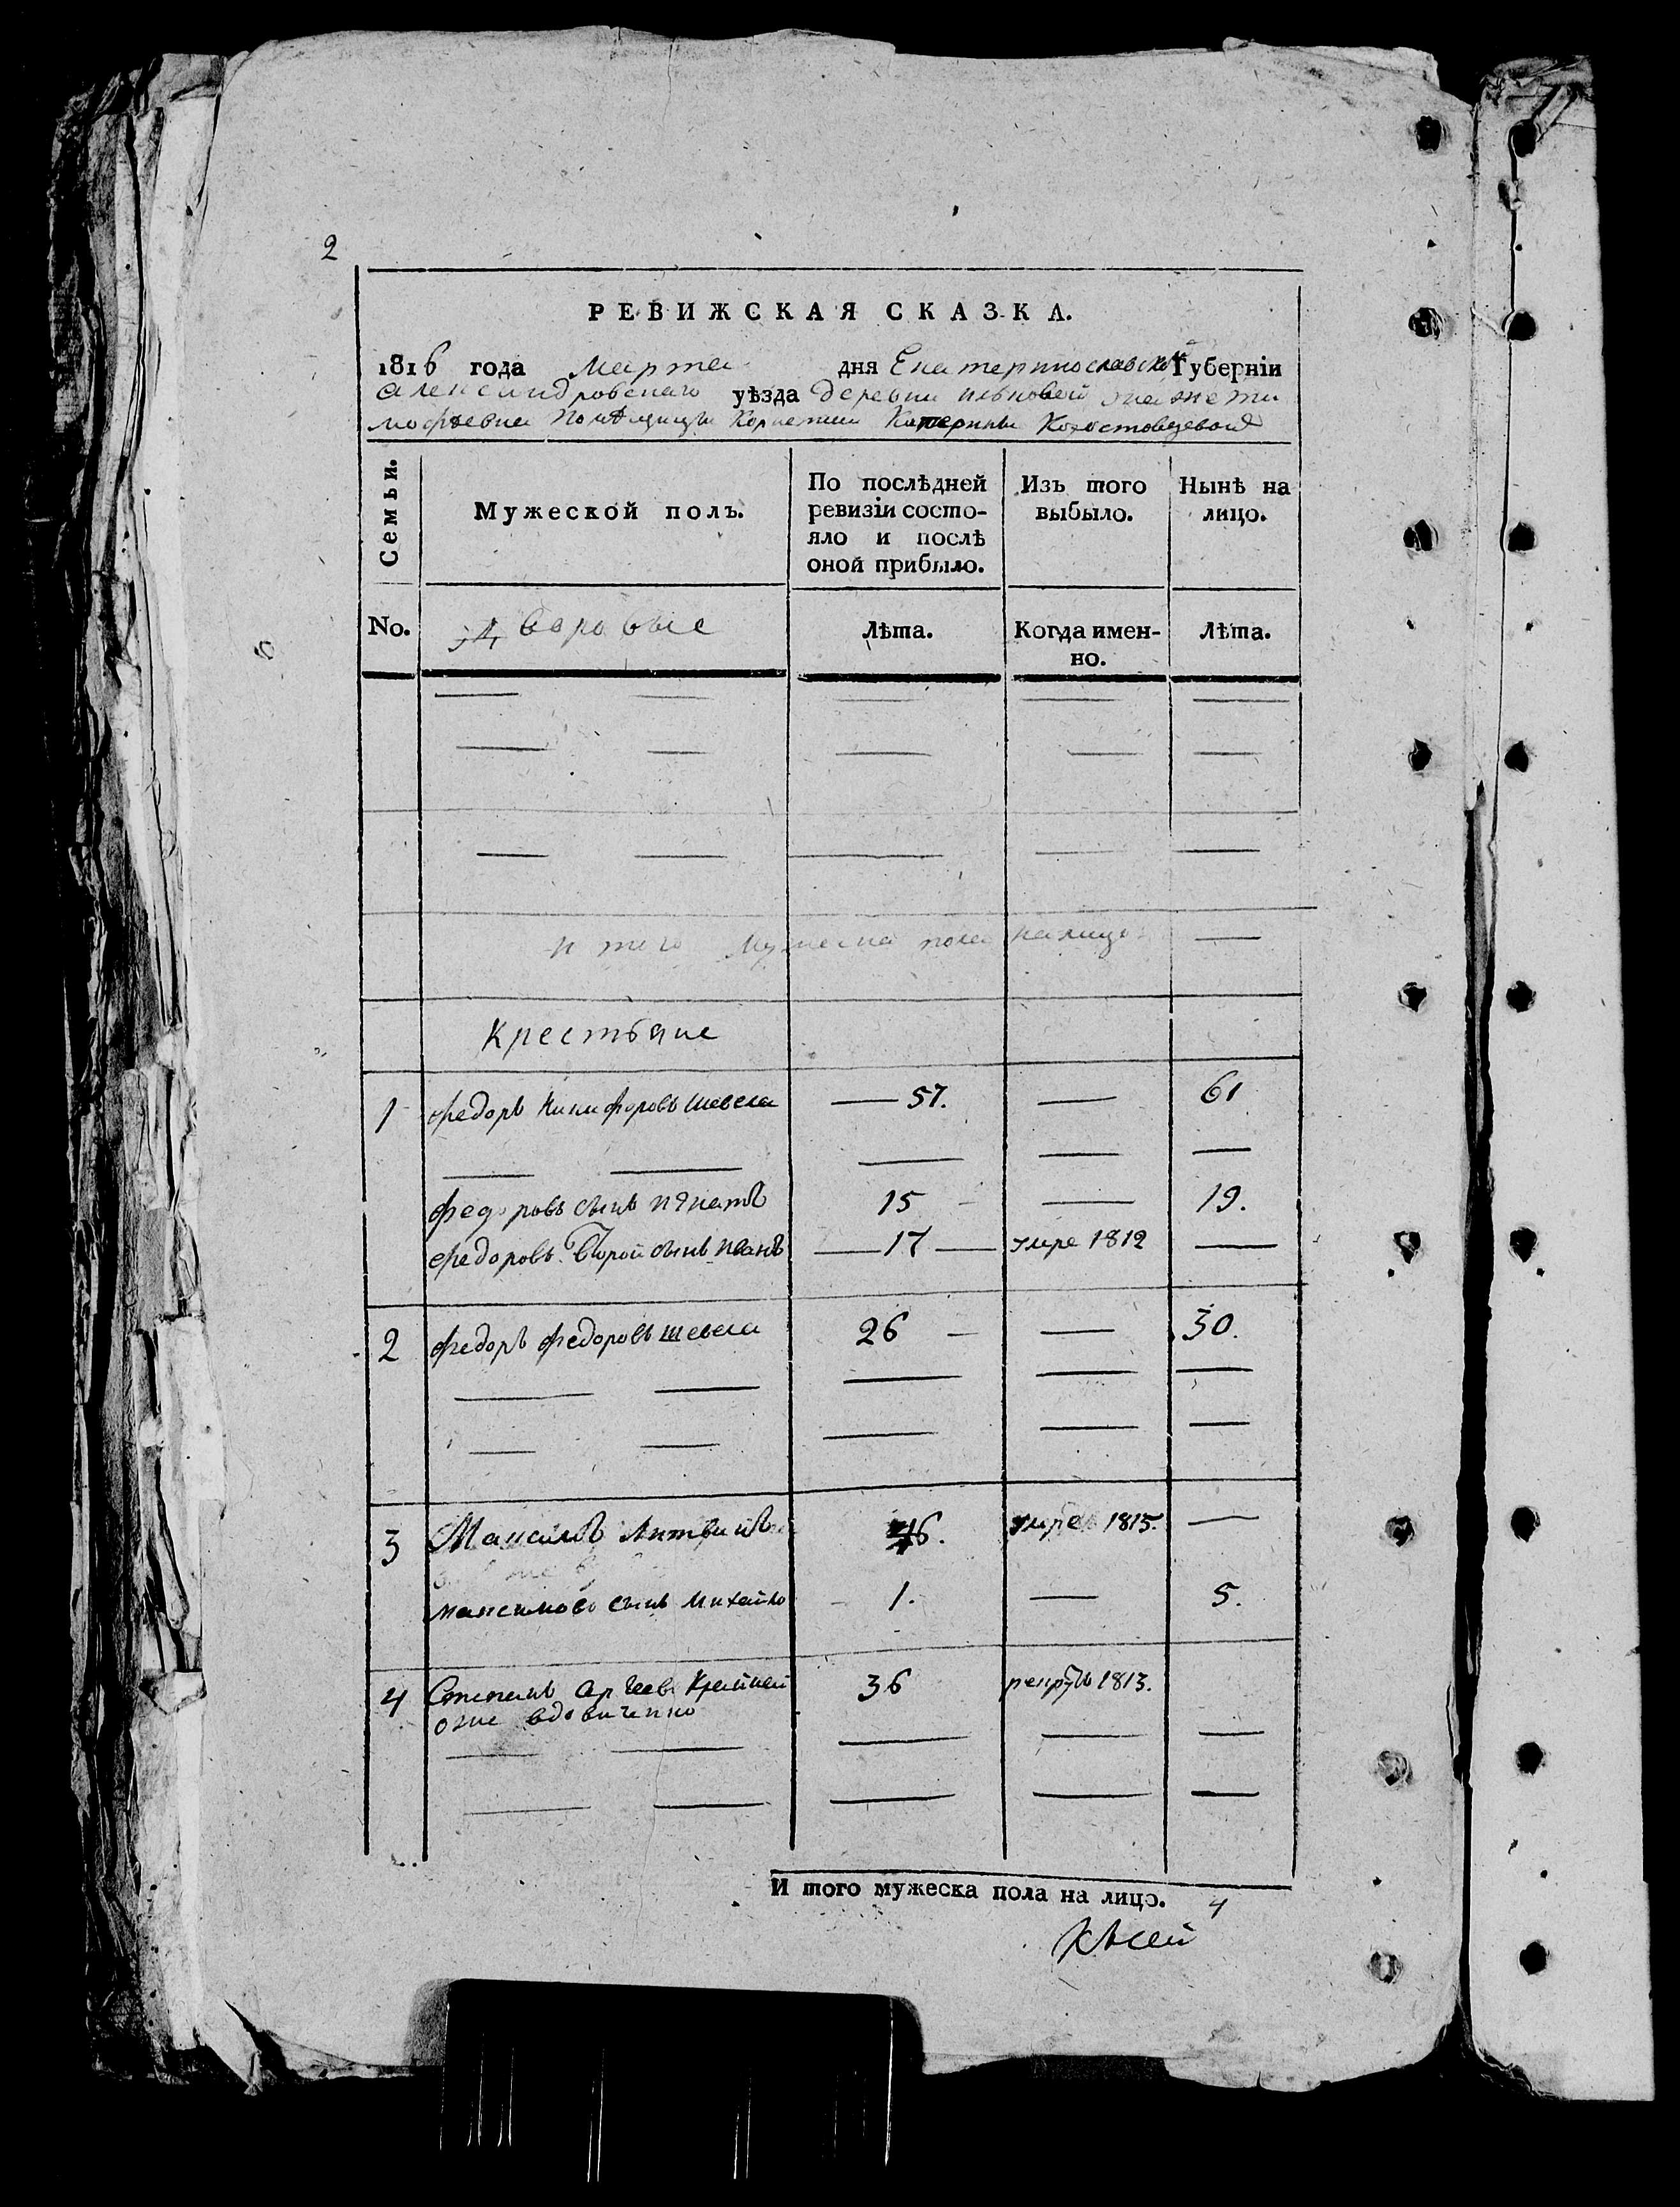 2
РЕВИЖСКАЯ СКАЗКА.
1816 года Марта дня Екатеринославской Губерніи
александровскаго уѣзда деревни ивновей она же ти
мофѣевка помѣщицы Корнетши Катерины
Семьи.
Мужеской полъ.
По послѣдней ревизіи состо-
яло и послѣ
оной прибыло.
Изъ того
выбыло.
Нынѣ на
лицо.
No. дворовые Лѣта. Когда имен-
но. Лѣта.
и того мужеска пола налицо —
Крестьяне
1 федоръ никифоровъ шевела — 57. — 61
федоровъ сынъ игнатъ 15 — 19.
федоровъ второй сынъ иванъ — 17 — умре 1812 —
2 федоръ федоровъ шевела 26 — — 30.
3 Максимъ Литвинъ 46. умре 1815. —
максимовъ сынъ михайло 1. — 5.
4 Степанъ Крайней 36 рекрутъ 1813.
онже вдовиченко
И того мужеска пола на лицо. 4